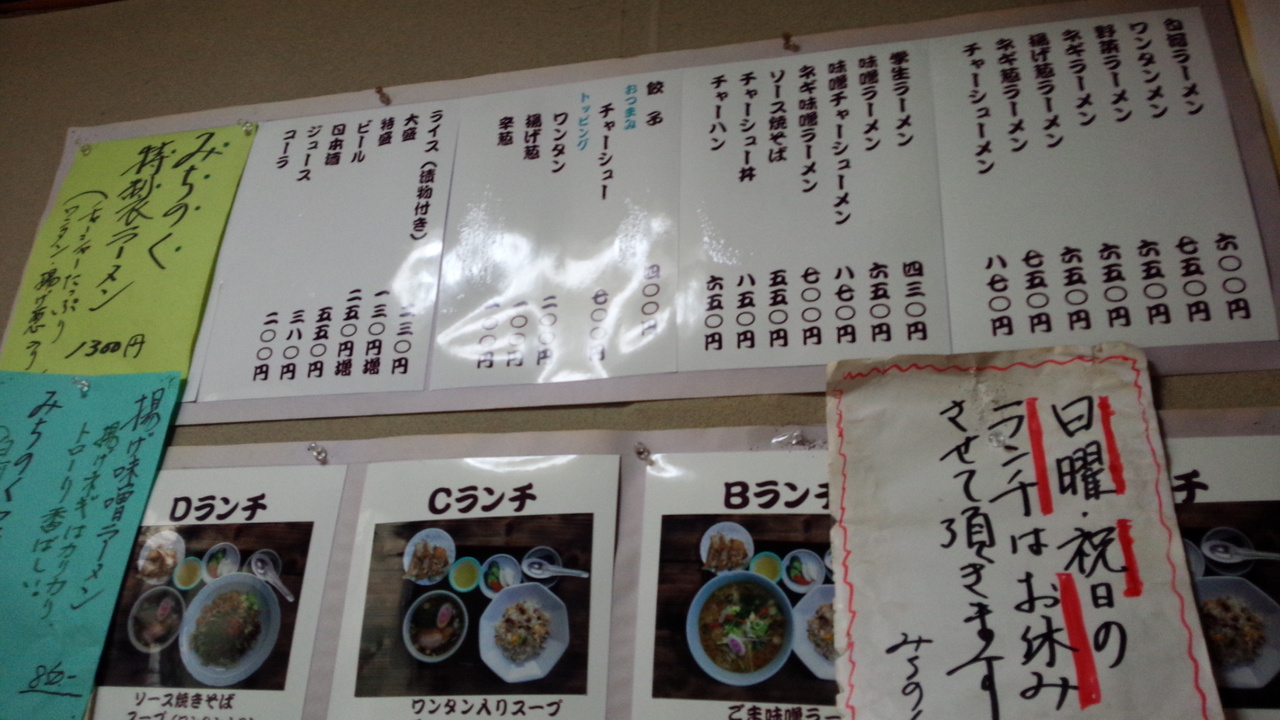 ラーメン 六〇〇円
ワンタンメン 七五〇円
野菜ラーメン 六五〇円
ネギラーメン 六五〇円
揚げ葱ラーメン 六五〇円
ネギ葱ラーメン 七五〇円
チャーシューメン 八七〇円
学生ラーメン 四三〇円
味噌ラーメン 六五〇円
味噌チャーシューメン 八七〇円
ネギ味噌ラーメン 七〇〇円
ソース焼そば 五五〇円
チャーシュー丼 八五〇円
チャーハン 六五〇円
餃子 四〇〇円
おつまみ
チャーシュー 七〇〇円
トッピング
ワンタン 二〇〇円
揚げ葱 一〇〇円
辛葱 一〇〇円
ライス(漬物付き) 二三〇円
大盛 一三〇円増
特盛 二五〇円増
ビール 五五〇円
日本酒 三八〇円
ジュース 二〇〇円
コーラ
みちのく
特製衣ラーメン
(チャーシューたっぷり
ワンタン・揚げ葱
1300円
揚げ味噌ラーメン
揚げネギはカリカリ、
トローリ香ばしい!
みちのく
日曜・祝日の
ランチはお休み
させて頂きます
みちの
Dランチ
ソース焼きそば
Cランチ
ワンタン入りスープ
Bランチ
ごま味噌ラー
チ